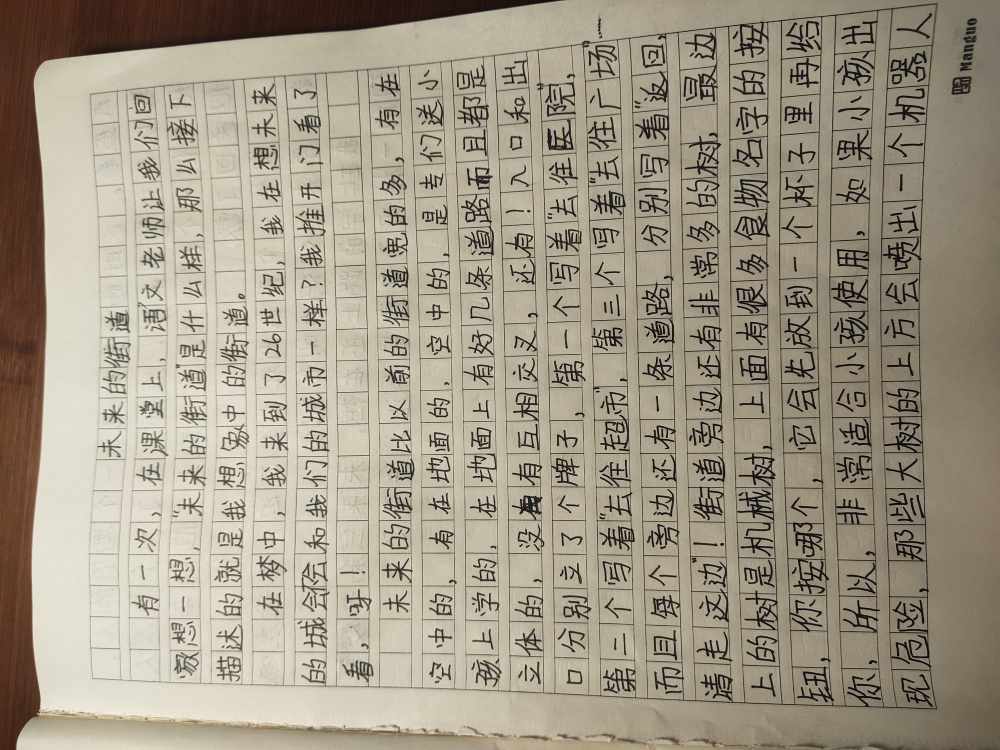 未来的街道
有一次，在课堂上，语文老师让我们回
家想一想，“未来的街道”是什么样，那么接下
描述的就是我想象中的街道。
在梦中，我来到了26世纪，我在想未来
的城会和我们的城市一样？我推开门看了
看，呀！
未来的街道比以前的街道宽的多，有在
空中的，有在地面的，空中的，是专们送小
孩上学的，在地面上有好几条道路而且都是
立体的，没有互相交叉，还有！入口和出
口分别立了个牌子，第一个写着“去往医院”，
第二个写着“去往超市”，第三个写着“去往广场”……
而且每个旁边还有一条道路，分别写着“返回，
请走这边”！街道旁边还有非常多的树，最边
上的树是机械树，上面有很多食物名字的按
钮，你按哪个，它会先放到一个杯子里再给
你，所以，非常适合小孩使用，如果小孩出
现危险，那些大树的上方会喷出一个机器人
Manguo